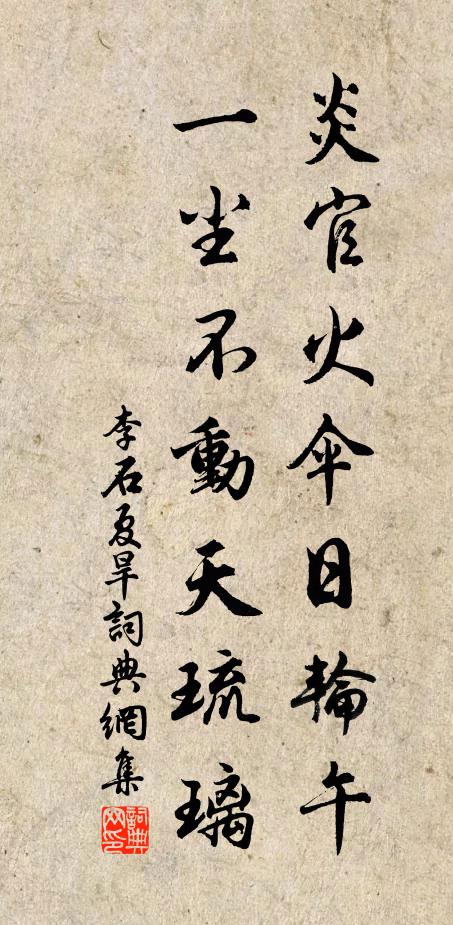 炎官火伞日輪午
一尘不動天琉璃
李石夏旱詞典網集
詞典網印